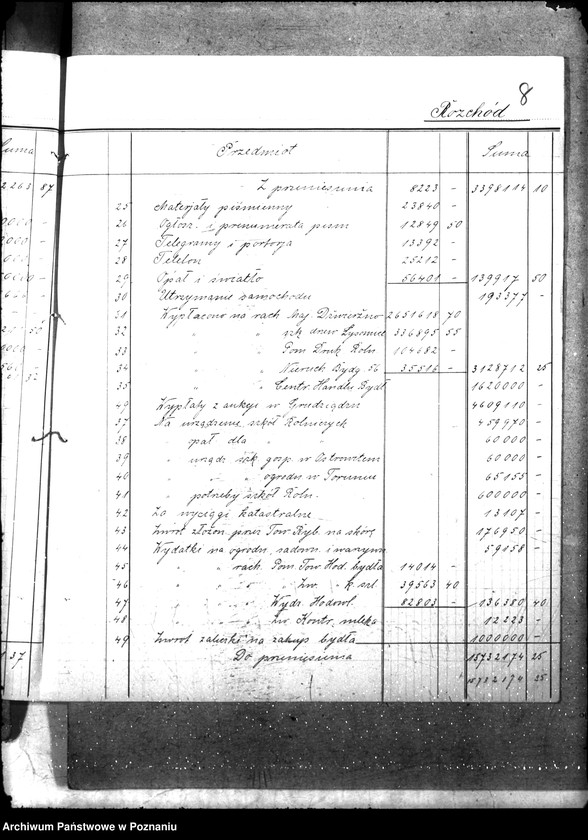 8
Rozchód
Suma
Przedmiot
Suma
2263 87
Z przeniesienia 8223 - 3398114 10
25 Materjały piśmienny 23840 -
26 Ogłosz. i prenumerata pism 12849 50
27 Telegramy i portorja 13392 -
28 Telefon 25212 -
29 Opał i światło 56401 - 139917 50
30 Utrzymanie samochodu 193377 -
31 Wypłacono na rach. Maj. Dźwierzno 2651618 70
32 " " szk drzew 336895 55
33 " " Pom Druk Roln 104682 -
34 " " Nieruch Bydg 56 35516 - 3128712 25
35 " " Centr. Handlu Bydł 1620000 -
49 Wypłaty z ankcji w Grudziądzu 4609110 -
37 Na urządzenie szkół Rolniczych 459970 -
38 " opał dla " " 60000 -
39 " urządz. szk. gosp. w 60000 -
40 " " ogrodn w Toruniu 65155 -
41 " potrzeby szkół Roln. 600000 -
42 Za wyciągi katastralne 13107 -
43 Zwrot złożon. przez Tow Ryb. na 176950 -
44 Wydatki na ogrodn. sadown. i warzywn 59158 -
45 " " rach. Pom. Tow. Hod. bydła 14014 -
46 " " " Zw. " k szl 39563 40
47 " " " Wydz. Hodowl. 82803 - 136380 40
48 " " " Zw Kontr. mleka 12223 -
49 Zwrot zaliczki na zakup bydła 1000000 -
137
Do przeniesienia 15732174 25
15732174 25
Archiwum Państwowe w Poznaniu